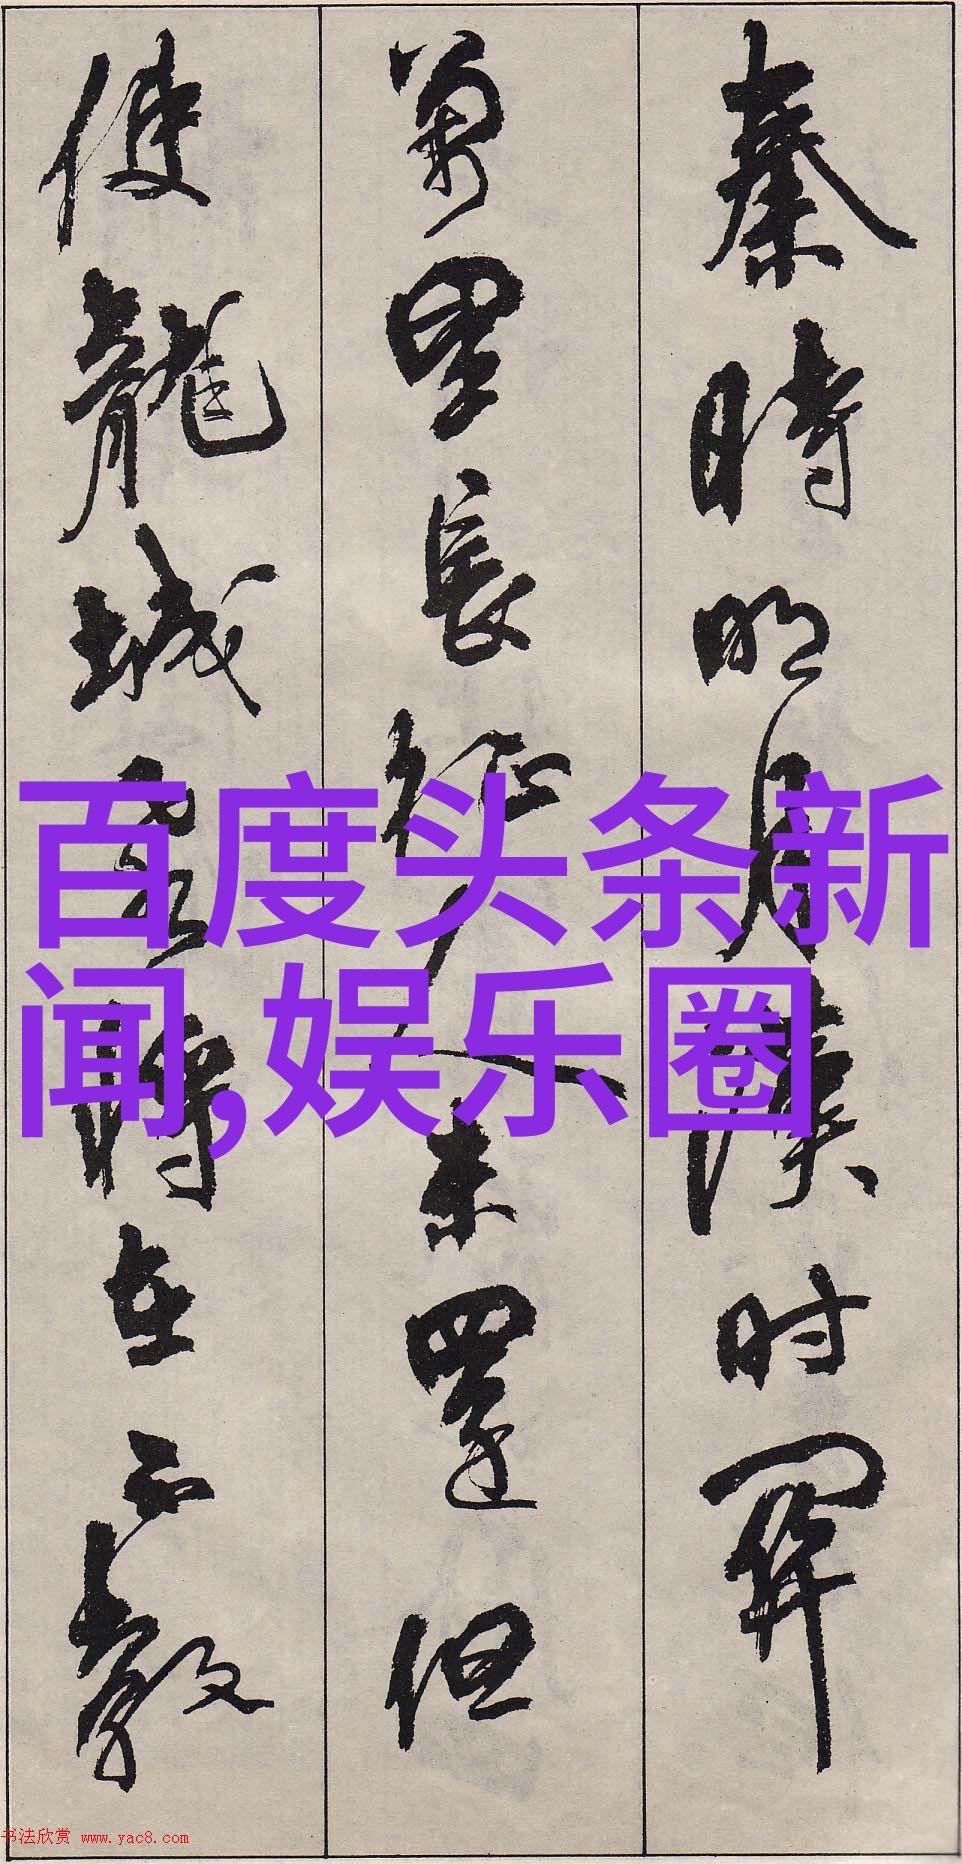 秦時明月漢时關
萬里長征人未還但
使龍城飛將在不教
百度头条新
闻,娱乐圈
书法欣赏 www.yac8.com